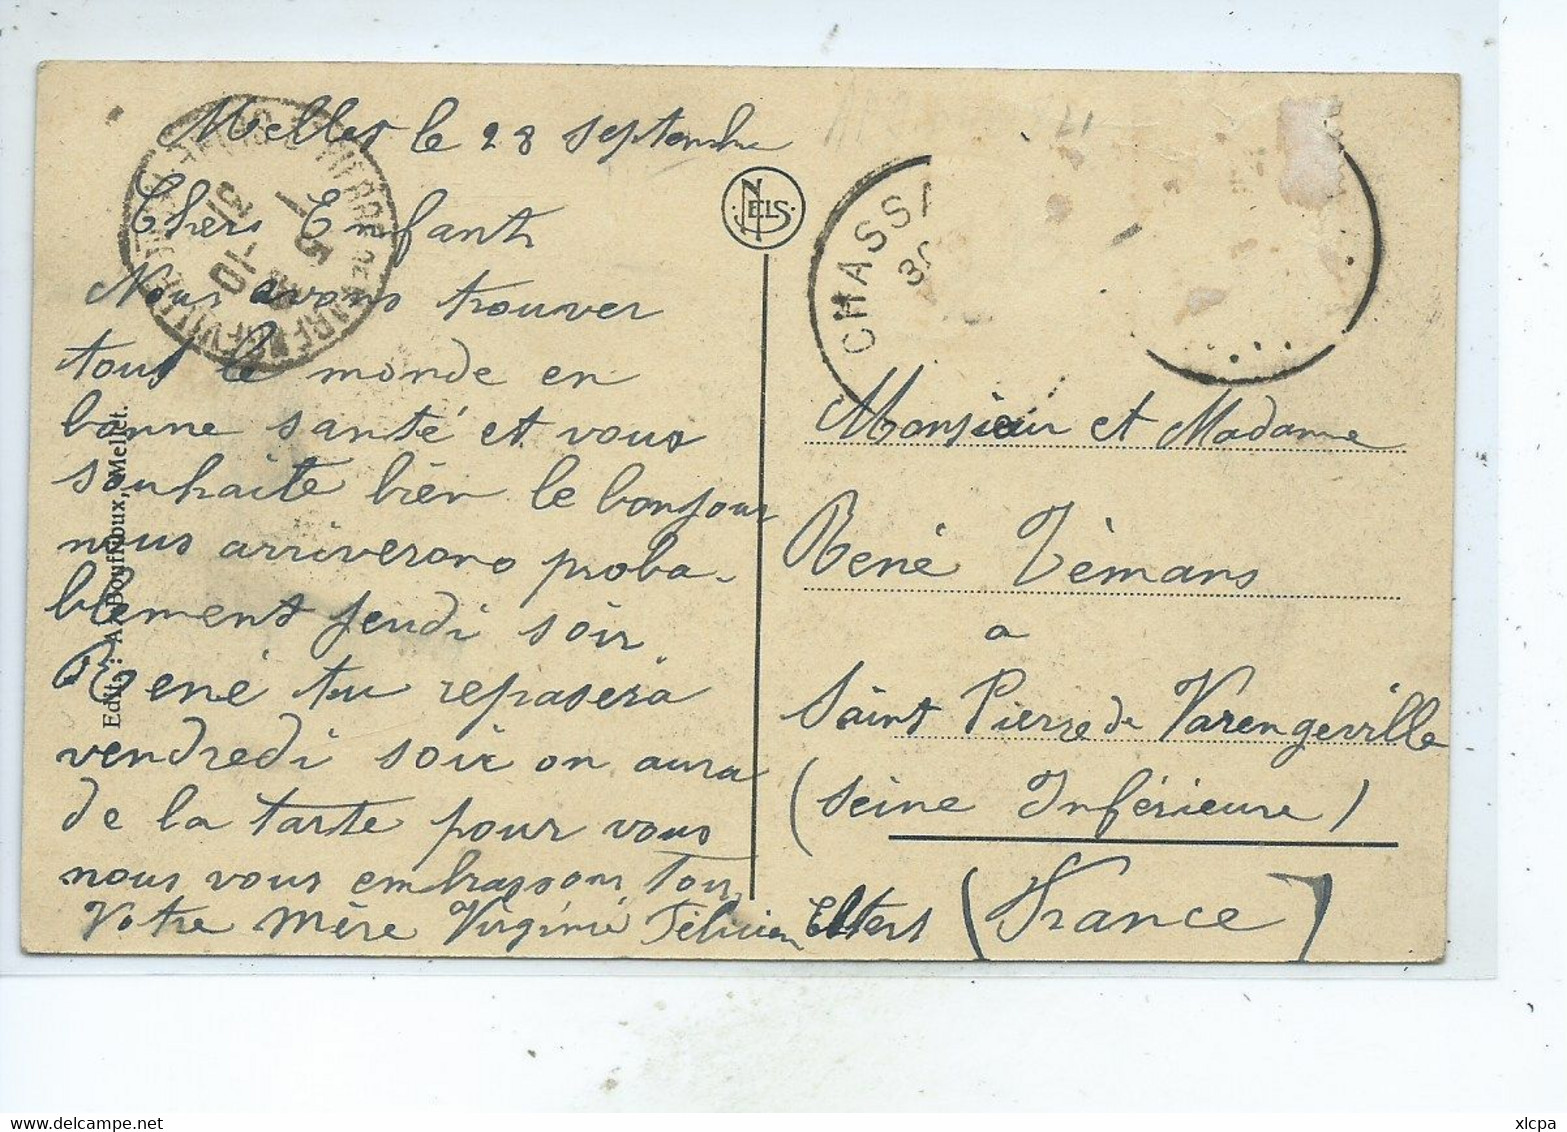 Mellet le 28 septembre
Chers Enfants
Nous avons trouver
tous le monde en
bonne santé et vous
souhaite bien le bonjour
nous arriverons proba-
blement jeudi soir
René tu repasera
vendredi soir on aura
de la tarte pour vous
nous vous embrassons Tous
Votre Mère Virginie Félicien
Edit.: A. Bouffioux, Mellet.
NELS
CHASSA
30
Monsieur et Madame
René Zèmans
a
Saint Pierre de Varengeville
(Seine Inférieure)
(France)
PIERRE DE VARENGEVILLE
5
10
31
delcampe.net
xlcpa